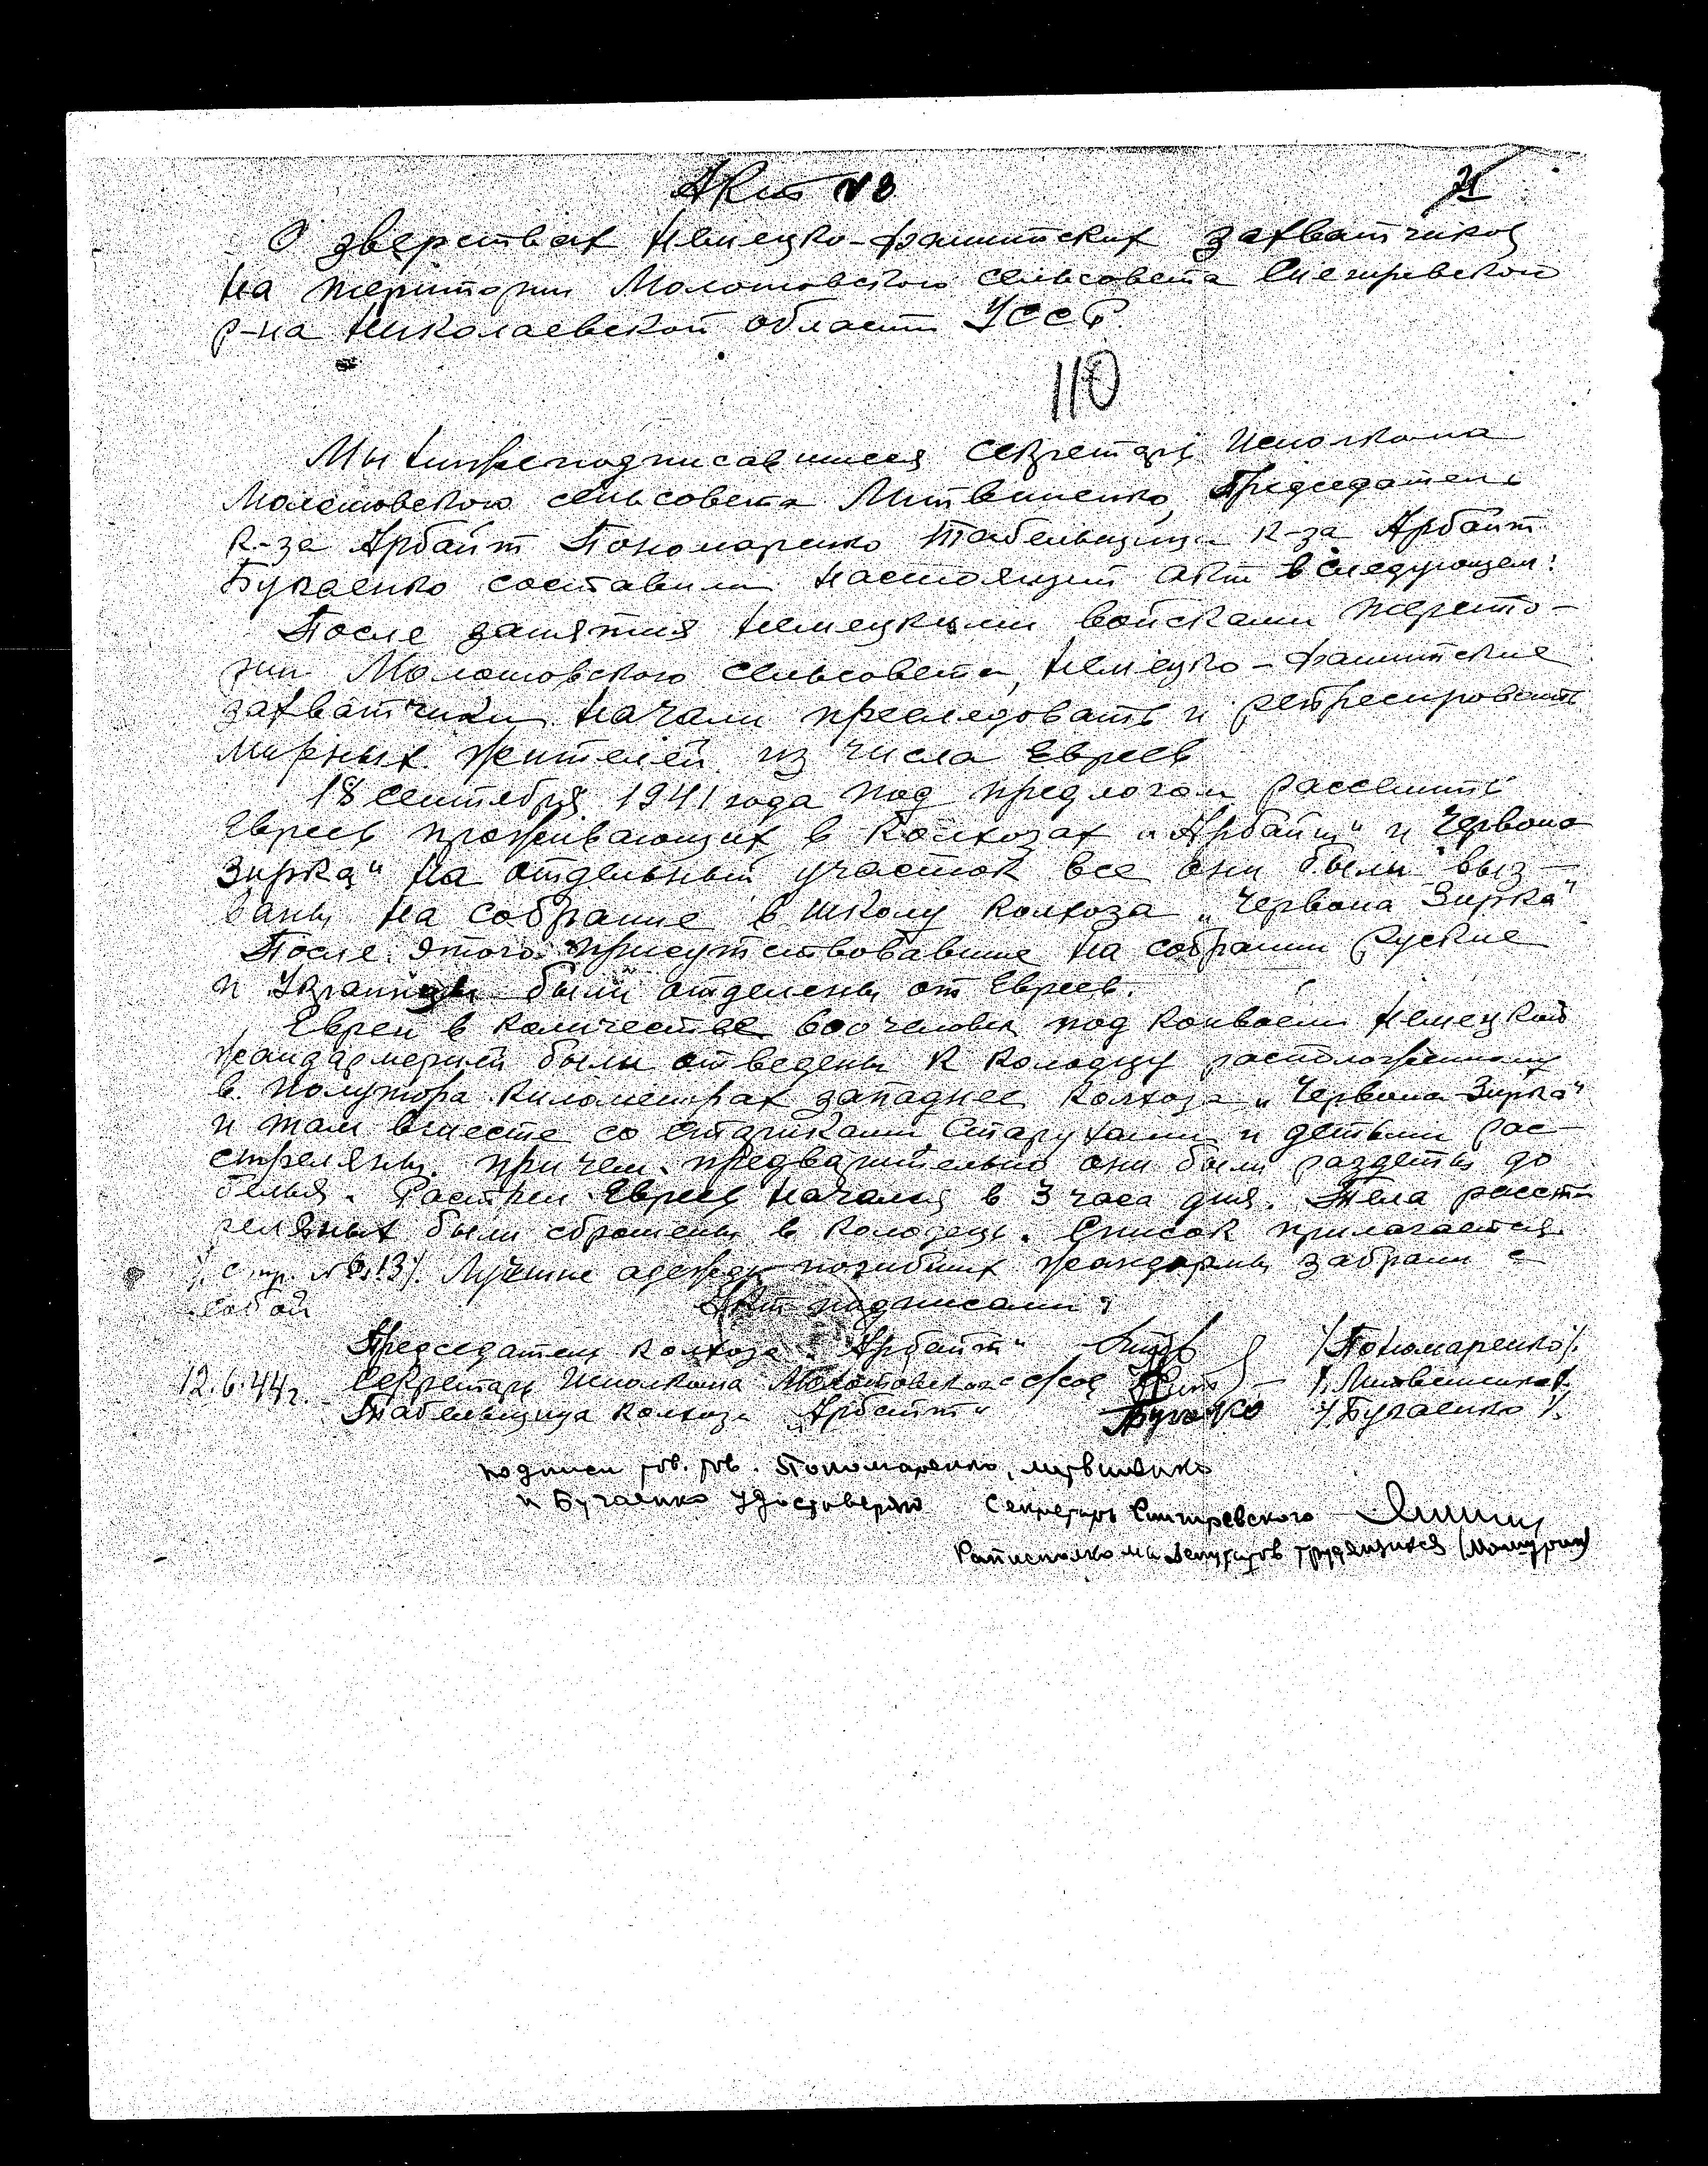 Акт №3
О зверствах немецко-фашистских захватчиков
на територии Молотовского сельсовета Снегиревского
р-на Николаевской области УССР.
110
Мы нижеподписавшиеся секретарь Исполкома
Молотовского сельсовета Литвиненко, Председатель
к-за Арбайт Пономаренко табельщица к-за Арбайт
Бугаенко составили настоящий акт в следующем:
После занятия немецкими войсками терито-
рии Молотовского сельсовета, немецко-фашистские
захватчики начали преследовать и репресировать
мирных жителей из числа Евреев
18 сентября 1941 года под предлогом расселить
Евреев проживающих в колхозах „Арбайт" и Червона
Зирка" на отдельный участок все они были выз-
ваны на собрание в школу колхоза „Червона Зирка"
После этого присутствовавшие на собрании руские
и Украинцы были отделены от Евреев.
Евреи в количестве человек под конвоем немецкой
жандармерии были отведены к колодцу расположенному
в полутора километрах западнее колхоза „Червона Зирка"
и там вместе со стариками, старухами и детьми рас-
стреляны. причем предварительно они были раздеты до
белья. Растрел Евреев начался в 3 часа дня. Тела расст-
реляных были сброшены в колодець. Список прилагается.
Лучшие одежды погибших жандармы забрали с
собой
Акт подписали:
Председатель колхоза „Арбайт" /Пономаренко/.
12.6.44г. Секретарь Исполкома Молотовского с/сов /Литвиненко/.
Табельщица колхоза „Арбайт" Бугаенко /Бугаенко/.
подписи тов. тов. Пономаренко, Литвиненко
и Бугаенко удостоверяю Секретарь Снигиревского
Райисполкома депутатов трудящихся